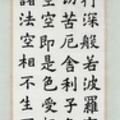 行深般若波羅
切苦厄舍利子
空空即是色受
諸法空相不生